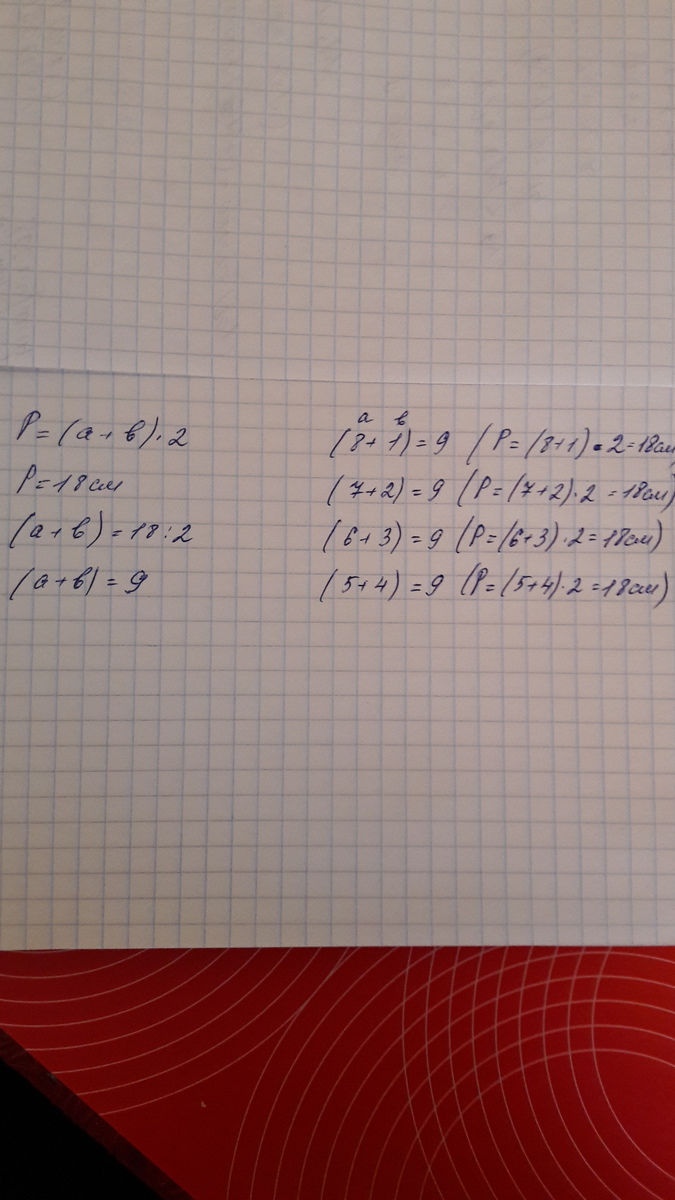 P = (a + в) · 2
P = 18 см
(a + в) = 18 : 2
(a + в) = 9
a в
(8 + 1) = 9 (P = (8+1) · 2 = 18 см
(7 + 2) = 9 (P = (7+2) · 2 = 18 см)
(6 + 3) = 9 (P = (6+3) · 2 = 18 см)
(5 + 4) = 9 (P = (5+4) · 2 = 18 см)